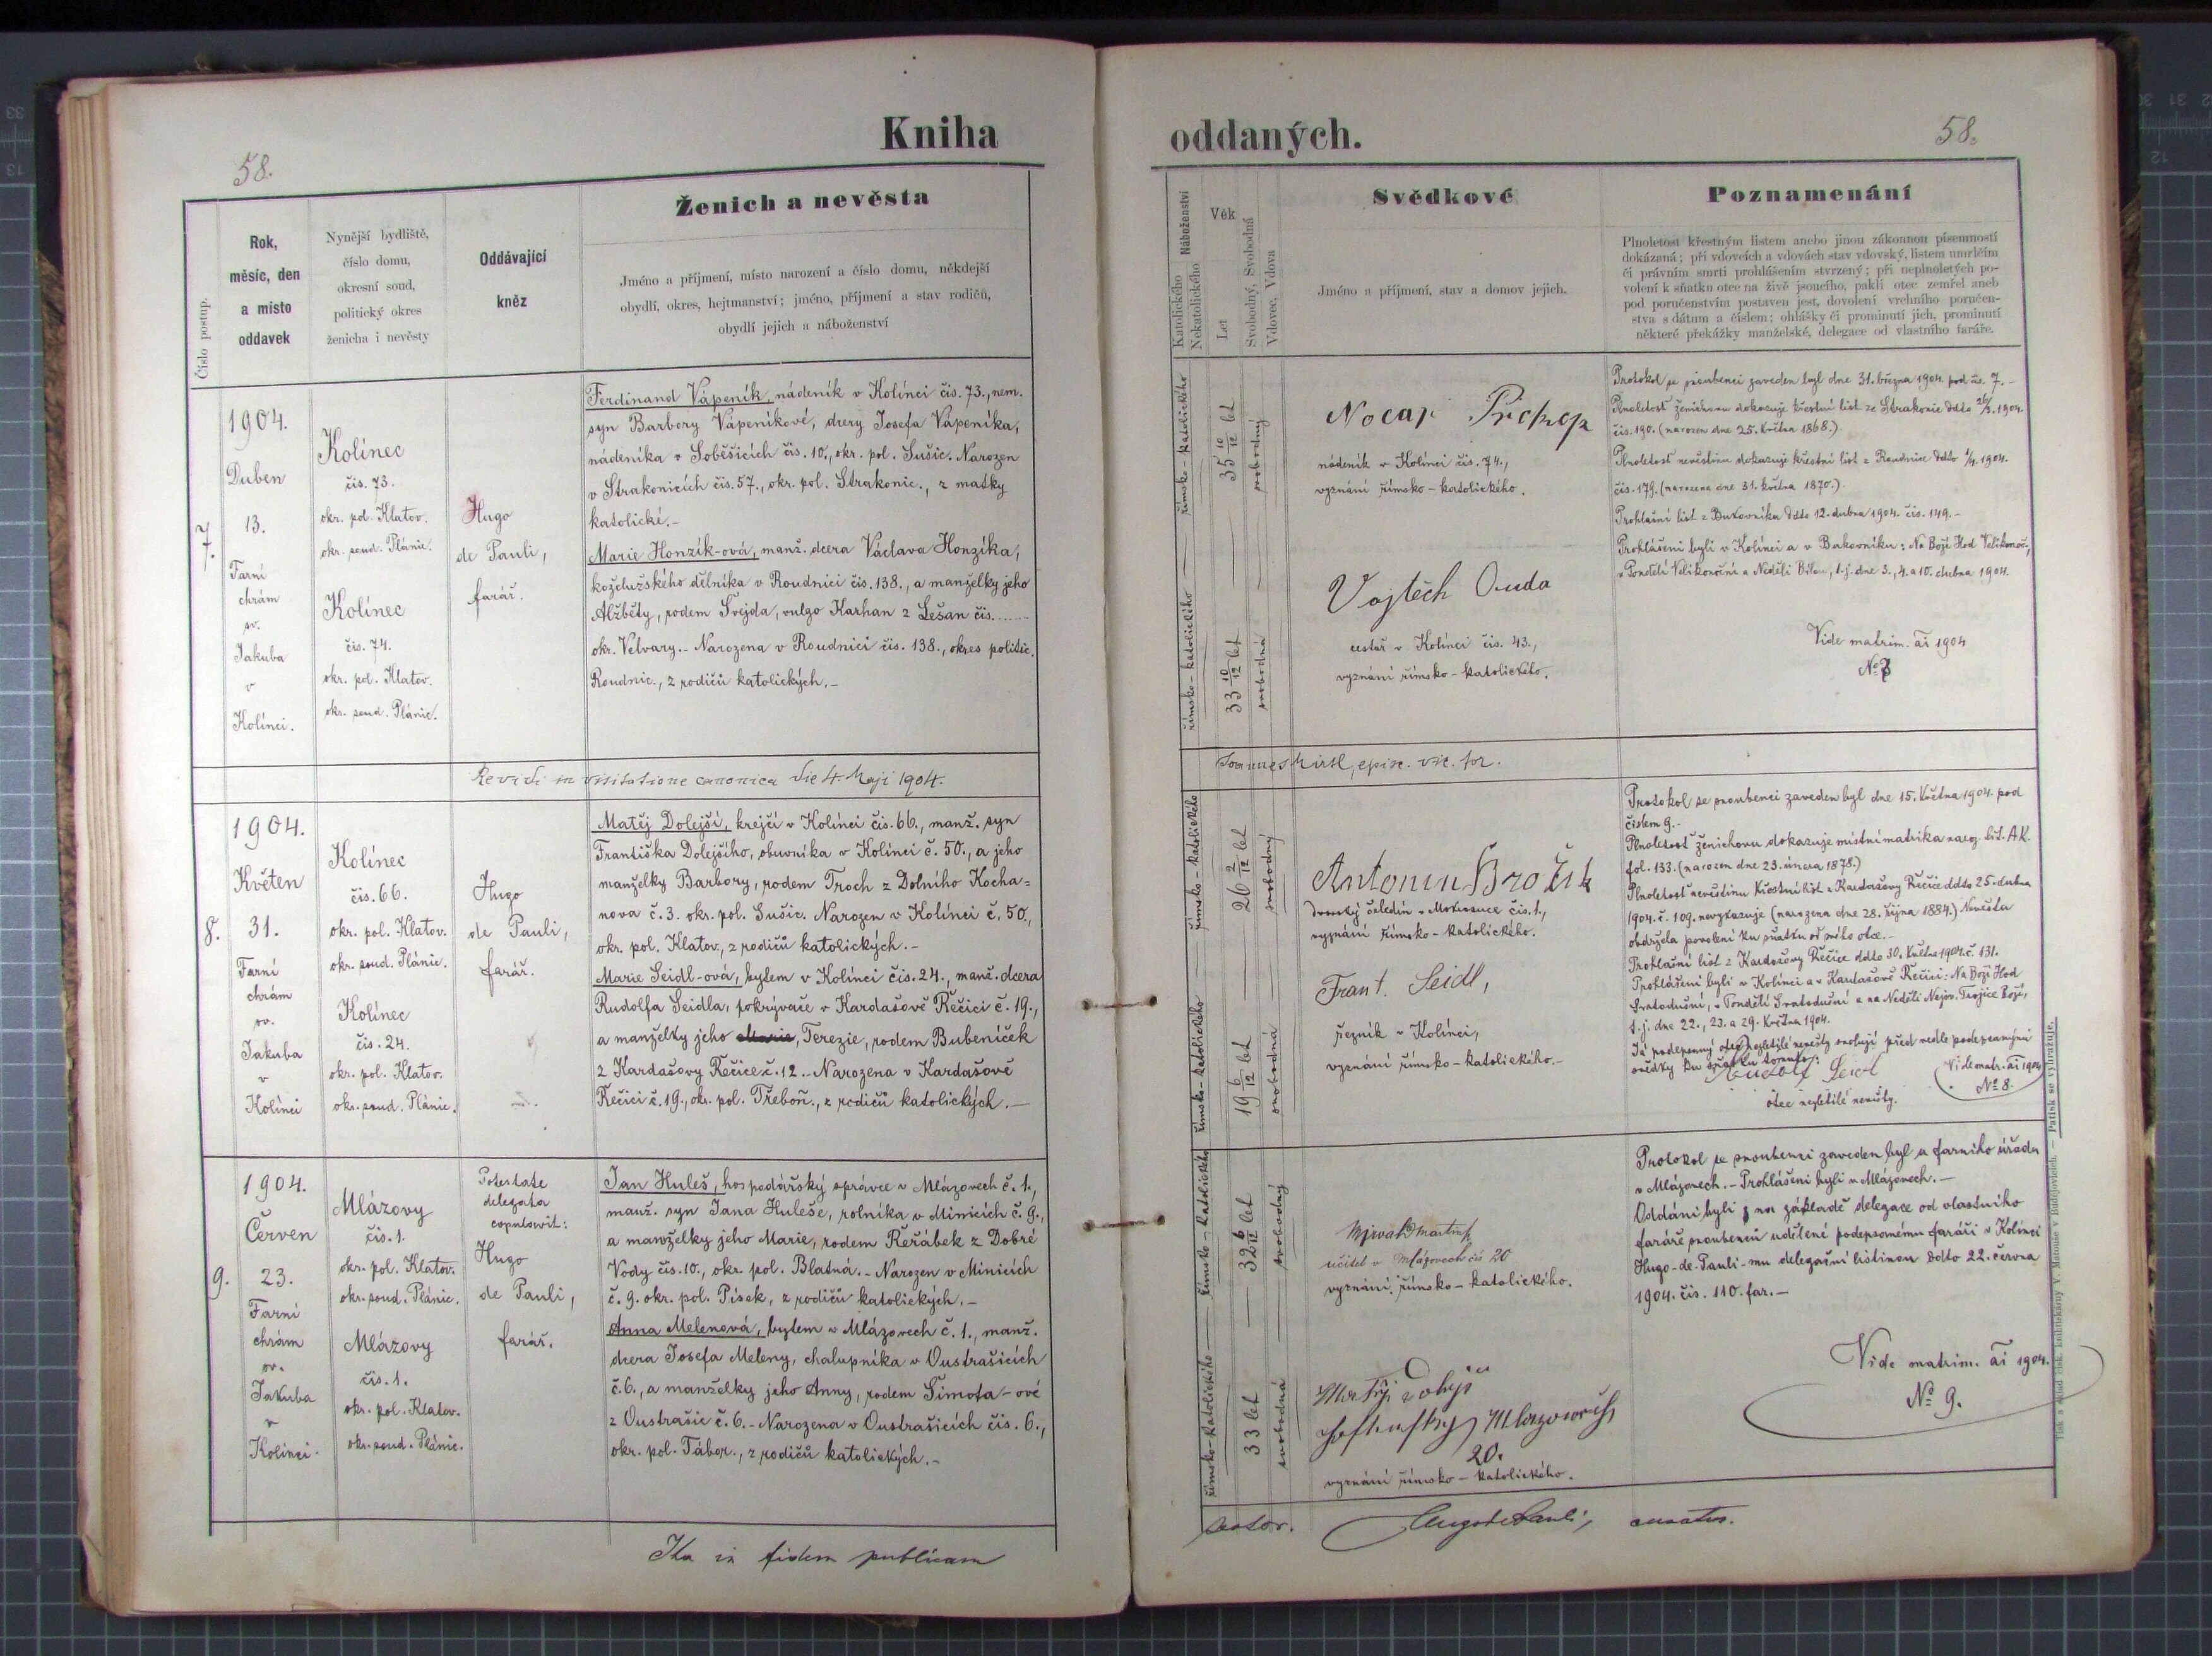 Kniha
oddaných.
58.
58.
Číslo postup.
Rok,
měsíc, den
a místo
oddavek
Nynější bydliště,
číslo domu,
okresní soud,
politický okres
ženicha i nevěsty
Oddávající
kněz
Ženich a nevěsta
Jméno a příjmení, místo narození a číslo domu, někdejší
obydlí, okres, hejtmanství; jméno, příjmení a stav rodičů,
obydlí jejich a náboženství
Katolického
Nekatolického
Náboženství
Věk
Let
Svobodný, Svobodná
Vdovec, Vdova
Svědkové
Jméno a příjmení, stav a domov jejich.
Poznamenání
Plnoletost křestným listem anebo jinou zákonnou písemností
dokázaná; při vdovcích a vdovách stav vdovský, listem umrlčím
či právním smrti prohlášením stvrzený; při neplnoletých po-
volení k sňatku otce na živě jsoucího, pakli otec zemřel aneb
pod poručenstvím postaven jest, dovolení vrchního poručen-
stva s dátum a číslem; ohlášky či prominutí jich, prominutí
některé překážky manželské, delegace od vlastního faráře.
7.
1904.
Duben
13.
Farní
chrám
sv.
Jakuba
v
Kolínci.
Kolínec
čís. 73.
okr. pol. Klatov.
okr. soud. Plánic.
Kolínec
čís. 74.
okr. pol. Klatov.
okr. soud. Plánic.
Hugo
de Pauli,
farář.
Ferdinand Vápeník, nádeník v Kolínci čís. 73., nem.
syn Barbory Vápeníkové, dcery Josefa Vápeníka,
nádeníka v Soběšicích čís. 10., okr. pol. Sušic. Narozen
v Strakonicích čís. 57., okr. pol. Strakonic., z matky
katolické.-
Marie Honzík-ová, manž. dcera Václava Honzíka,
koželužského dělníka v Roudnici čís. 138., a manželky jeho
Alžběty, rodem Švejda, vulgo Karhan z Lešan čís. ......
okr. Velvary.- Narozena v Roudnici čís. 138., okres politic.
Roudnic., z rodičů katolických.-
římsko-katolického
35 10/12 let
svobodný
římsko-katolického
33 10/12 let
svobodná
Nocar Prokop
nádeník v Kolínci čís. 74.,
vyznání římsko-katolického.
Vojtěch Ouda
cestář v Kolínci čís. 43.,
vyznání římsko-katolického.
Protokol se snoubenci zaveden byl dne 31. března 1904. pod čís. 7.-
Plnoletosť ženichovu dokazuje křestní list ze Strakonic ddto 26/3. 1904.
čís. 190. (narozen dne 25. května 1868.)
Plnoletosť nevěstinu dokazuje křestní list z Roudnice ddto 1/4. 1904.
čís. 179. (narozena dne 31. května 1870.).
Prohlašní list z ddto 12. dubna 1904. čís. 149.-
Prohlášeni byli v Kolínci a v : Na Boží Hod Velikonoč.,
v Pondělí Velikonoční a Neděli Bílou, t. j. dne 3., 4. a 10. dubna 1904.
Vide matrim. ai 1904
No 7
Revidi in visitatione canonica die 4. Maji 1904.
Joannes episc. vic. for.
8.
1904.
Květen
31.
Farní
chrám
sv.
Jakuba
v
Kolínci
Kolínec
čís. 66.
okr. pol. Klatov.
okr. soud. Plánic.
Kolínec
čís. 24.
okr. pol. Klatov.
okr. soud. Plánic.
Hugo
de Pauli,
farář.
Matěj Dolejší, krejčí v Kolínci čís. 66., manž. syn
Františka Dolejšího, obuvníka v Kolínci č. 50., a jeho
manželky Barbory, rodem Troch z Dolního Kocha=
nova č. 3. okr. pol. Sušic. Narozen v Kolínci č. 50.,
okr. pol. Klatov., z rodičů katolických.-
Marie Seidl-ová, bytem v Kolínci čís. 24., manž. dcera
Rudolfa Seidla, pokrývače v Kardašově Řečici č. 19.,
a manželky jeho Marie, Terezie, rodem Bubeníček
z Kardašovy Řečice č. 12.- Narozena v Kardašově
Řečici č. 19., okr. pol. Třeboň., z rodičů katolických.-
římsko-katolického
26 2/12 let
svobodný
římsko-katolického
19 6/12 let
svobodná
Antonín Brožík
dvorský čeledín v čís. 1.,
vyznání římsko-katolického.
Frant. Seidl,
řezník v Kolínci,
vyznání římsko-katolického.-
Protokol se snoubenci zaveden byl dne 15. května 1904. pod
číslem 9.-
Plnoletosť ženichovu dokazuje místní matrika naroz. Lit. A K.
fol. 133. (narozen dne 23. února 1878.)
Plnoletosť nevěstinu křestní list z Kardašovy Řečice ddto 25. dubna
1904. č. 109. nevykazuje (narozena dne 28. října 1884.) Nevěsta
obdržela povolení ku sňatku od svého otce.-
Prohlašní list z Kardašovy Řečice ddto 30. května 1904. č. 131.
Prohlášeni byli v Kolínci a v Kardašově Řečici: Na Boží Hod
Svatodušní, v Pondělí Svatodušní a na Neděli Nejsv. Trojice Boží,
t. j. dne 22., 23. a 29. května 1904.
Já podepsaný otec nezletilé nevěsty svoluji před vedle podepsanými
svědky ku sňatku tomuto:
Rudolf Seidl
otec nezletilé nevěsty.
Vide matr. ai 1904
No 8.
9.
1904.
Červen
23.
Farní
chrám
sv.
Jakuba
v
Kolínci.
Mlázovy
čís. 1.
okr. pol. Klatov.
okr. soud. Plánic.
Mlázovy
čís. 1.
okr. pol. Klatov.
okr. soud. Plánic.
Potestate
delegata
copulavit:
Hugo
de Pauli,
farář.
Jan Huleš, hospodářský správce v Mlázovech č. 1.,
manž. syn Jana Huleše, rolníka v Minicích č. 9.,
a manželky jeho Marie, rodem Řeřábek z Dobré
Vody čís. 10., okr. pol. Blatná.- Narozen v Minicích
č. 9. okr. pol. Písek, z rodičů katolických.-
Anna Melenová, bytem v Mlázovech č. 1., manž.
dcera Josefa Meleny, chalupníka v Oustrašicích
č. 6., a manželky jeho Anny, rodem Šimota-ové
z Oustrašic č. 6.- Narozena v Oustrašicích čís. 6.,
okr. pol. Tábor., z rodičů katolických.-
římsko-katolického
32 6/12 let
svobodný
římsko-katolického
33 let
svobodná
učitel v Mlázovech čís 20
vyznání římsko-katolického.
Matěj
Mlazowech
20.
vyznání římsko-katolického.
Protokol se snoubenci zaveden byl u farního úřadu
v Mlázovech.- Prohlášeni byli v Mlázovech.-
Oddáni byli na základě delegace od vlastního
faráře snoubenců udělené podepsanému faráři v Kolínci
Hugo-de-Pauli-mu delegační listinou ddto 22. června
1904. čís. 110. far.-
Vide matrim. ai 1904.
No 9.
Ita in fidem publicam
testor.
Hugo de Pauli, curatus.
Tisk a sklad tisk. knihtiskárny V. Matouše v Budějovicích. — Patisk se vyhražuje.